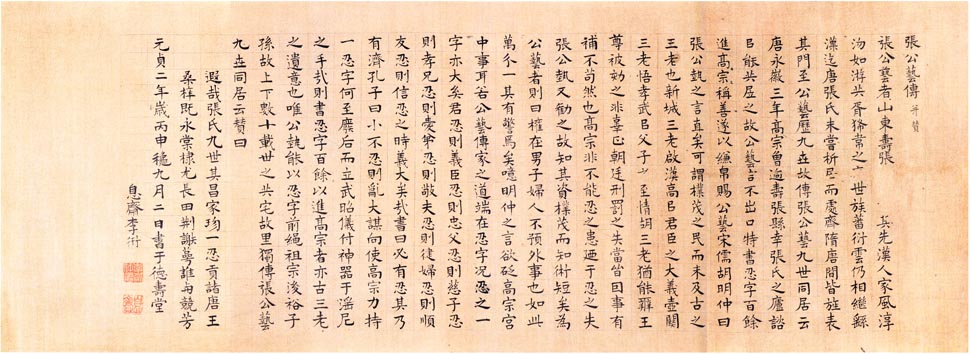 張公藝傳 并贊
張公藝者山東壽張 其先漢人家風淳
沕如游共胥獝常之 世族蕃衍雲仍相継繇
漢迄唐張氏未嘗析居而處齋隋唐間皆旌表
其門至公藝歷九世故傳張公藝九世同居云
唐永徽三年高宗曾過壽張縣幸張氏之廬詔
㠯能共居之故公藝言不出口特書忍字百餘
進高宗稱善遂以縑帛賜公藝宋儒胡明仲曰
張公執之言直矣可謂樸茂之民而未及古之
三老也新城三老啟漢高㠯君臣之大義壺關
三老悟孝武㠯父子 至情胡三老猶能難王
尊被劾之非辜㠯朝廷刑罰之失當皆因事有
補不苟然也高宗非不能忍之患廼于忍之失
張公執又勸之故知其資樸茂而知術短矣為
公藝者則曰權在男子婦人不預外事也如此
萬分一具有警焉矣噫明仲之言欲砭高宗宮
中事耳若公藝傳家之道端在忍字况忍之一
字亦大矣君忍則義臣忍則忠父忍則慈子忍
則孝兄忍則愛弟忍則敬夫忍則從婦忍則順
友忍則信忍之時義大矣哉書曰必有忍其乃
有濟孔子曰小不忍則亂大謀向使高宗力持
一忍字何至麀后而立武昭儀付神器于滛尼
之手哉則書忍字百餘以進高宗者亦古三老
之遺意也唯公執能以忍字前繩祖宗後裕子
孫故上下數十載世之共宅故里獨傳張公藝
九世同居云贊曰
遐哉張氏九世其昌家珎一忍貢諸唐王
桑梓既永棠棣尤長田荆謝夢誰與競芳
元貞二年歲丙申穐九月二日書于德壽堂
息齋李衎